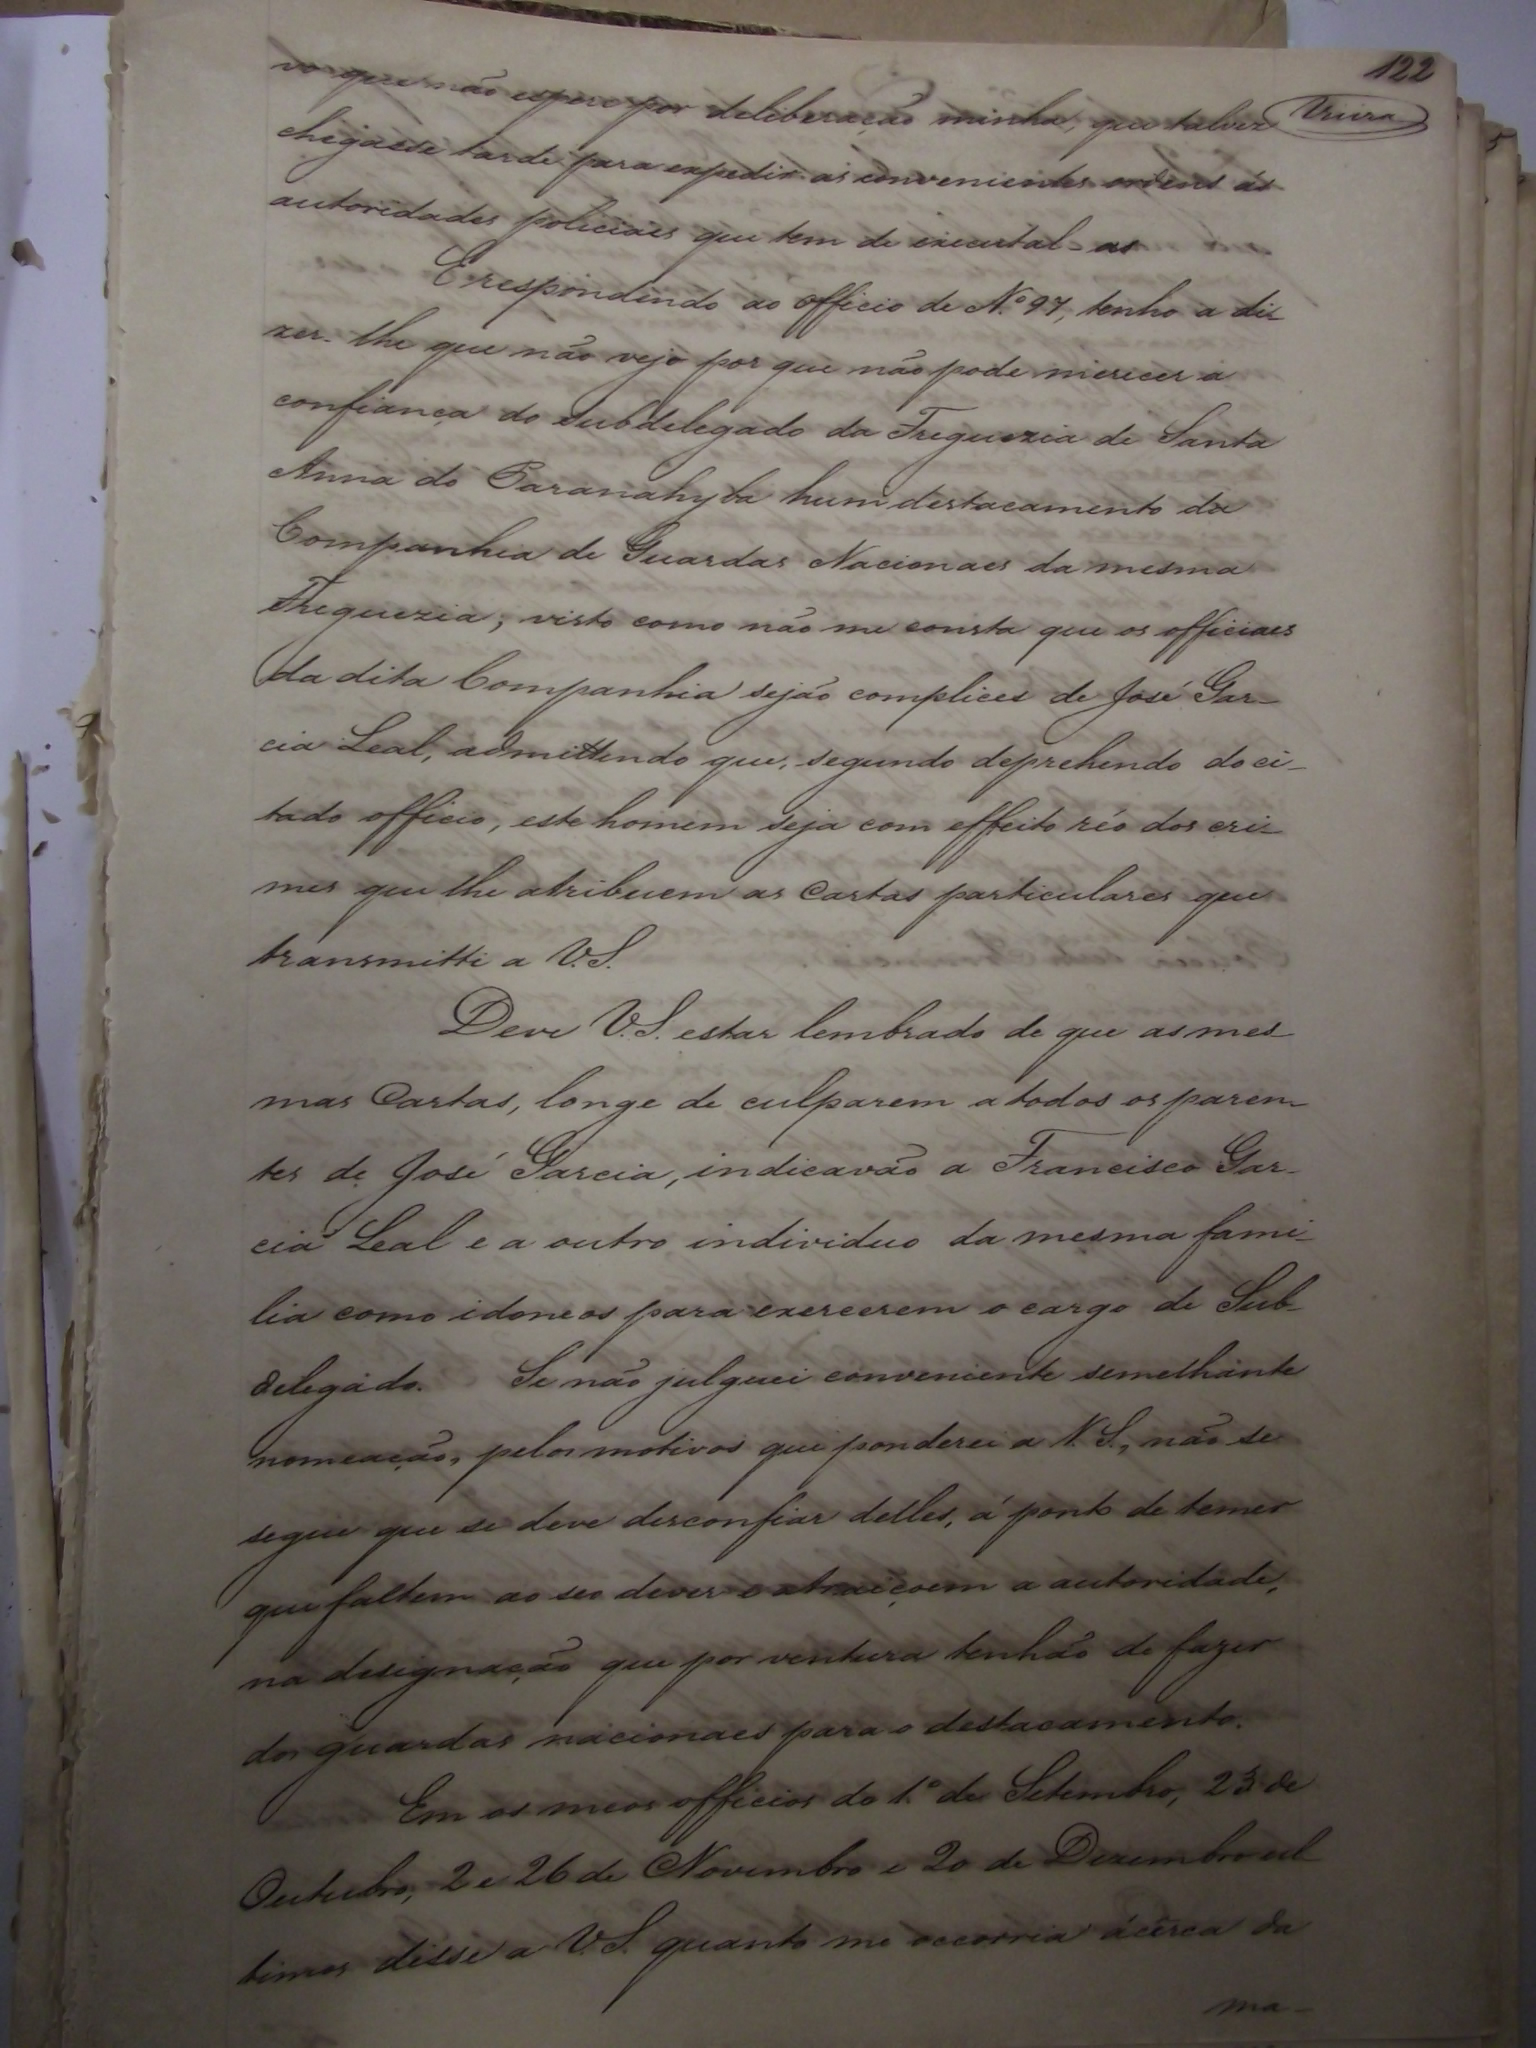 122
Vieira
vo que não espere por deliberação minha, que talvez
chegasse tarde para expedir as convenientes ordens ás
autoridades policiaes que tem de executal-as
E respondendo ao officio de Nº 97, tenho a di-
zer-lhe que não vejo por que não pode merecer a
confiança do subdelegado da Freguezia de Santa
Anna do Paranahyba hum destacamento da
Companhia de Guardas Nacionaes da mesma
Freguezia; visto como não me consta que os officiaes
da dita Companhia sejão complices de José Gar-
cia Leal, admittindo que, segundo deprehendo do ci-
tado officio, este homem seja com effeito réo dos cri-
mes que lhe atribuem as cartas particulares que
transmitti a V.S.
Deve V.S. estar lembrado de que as mes-
mas Cartas, longe de culparem a todos os paren-
tes de José Garcia, indicavão a Francisco Gar-
cia Leal e a outro individuo da mesma fami-
lia como idoneos para exercerem o cargo de Sub-
delegado. Se não julguei conveniente semelhante
nomeação, pelos motivos que ponderei a V.S., não se
segue que se deve desconfiar delles, á ponto de temer
que faltem ao seo dever e atraiçoem a autoridade,
na designação que por ventura tenhão de fazer
dos guardas nacionaes para o destacamento.
Em os meos officios do 1º de Setembro, 23 de
Outubro, 2 e 26 de Novembro e 20 de Dezembro ul-
timos disse a V.S. quanto me occorria ácerca da
ma-